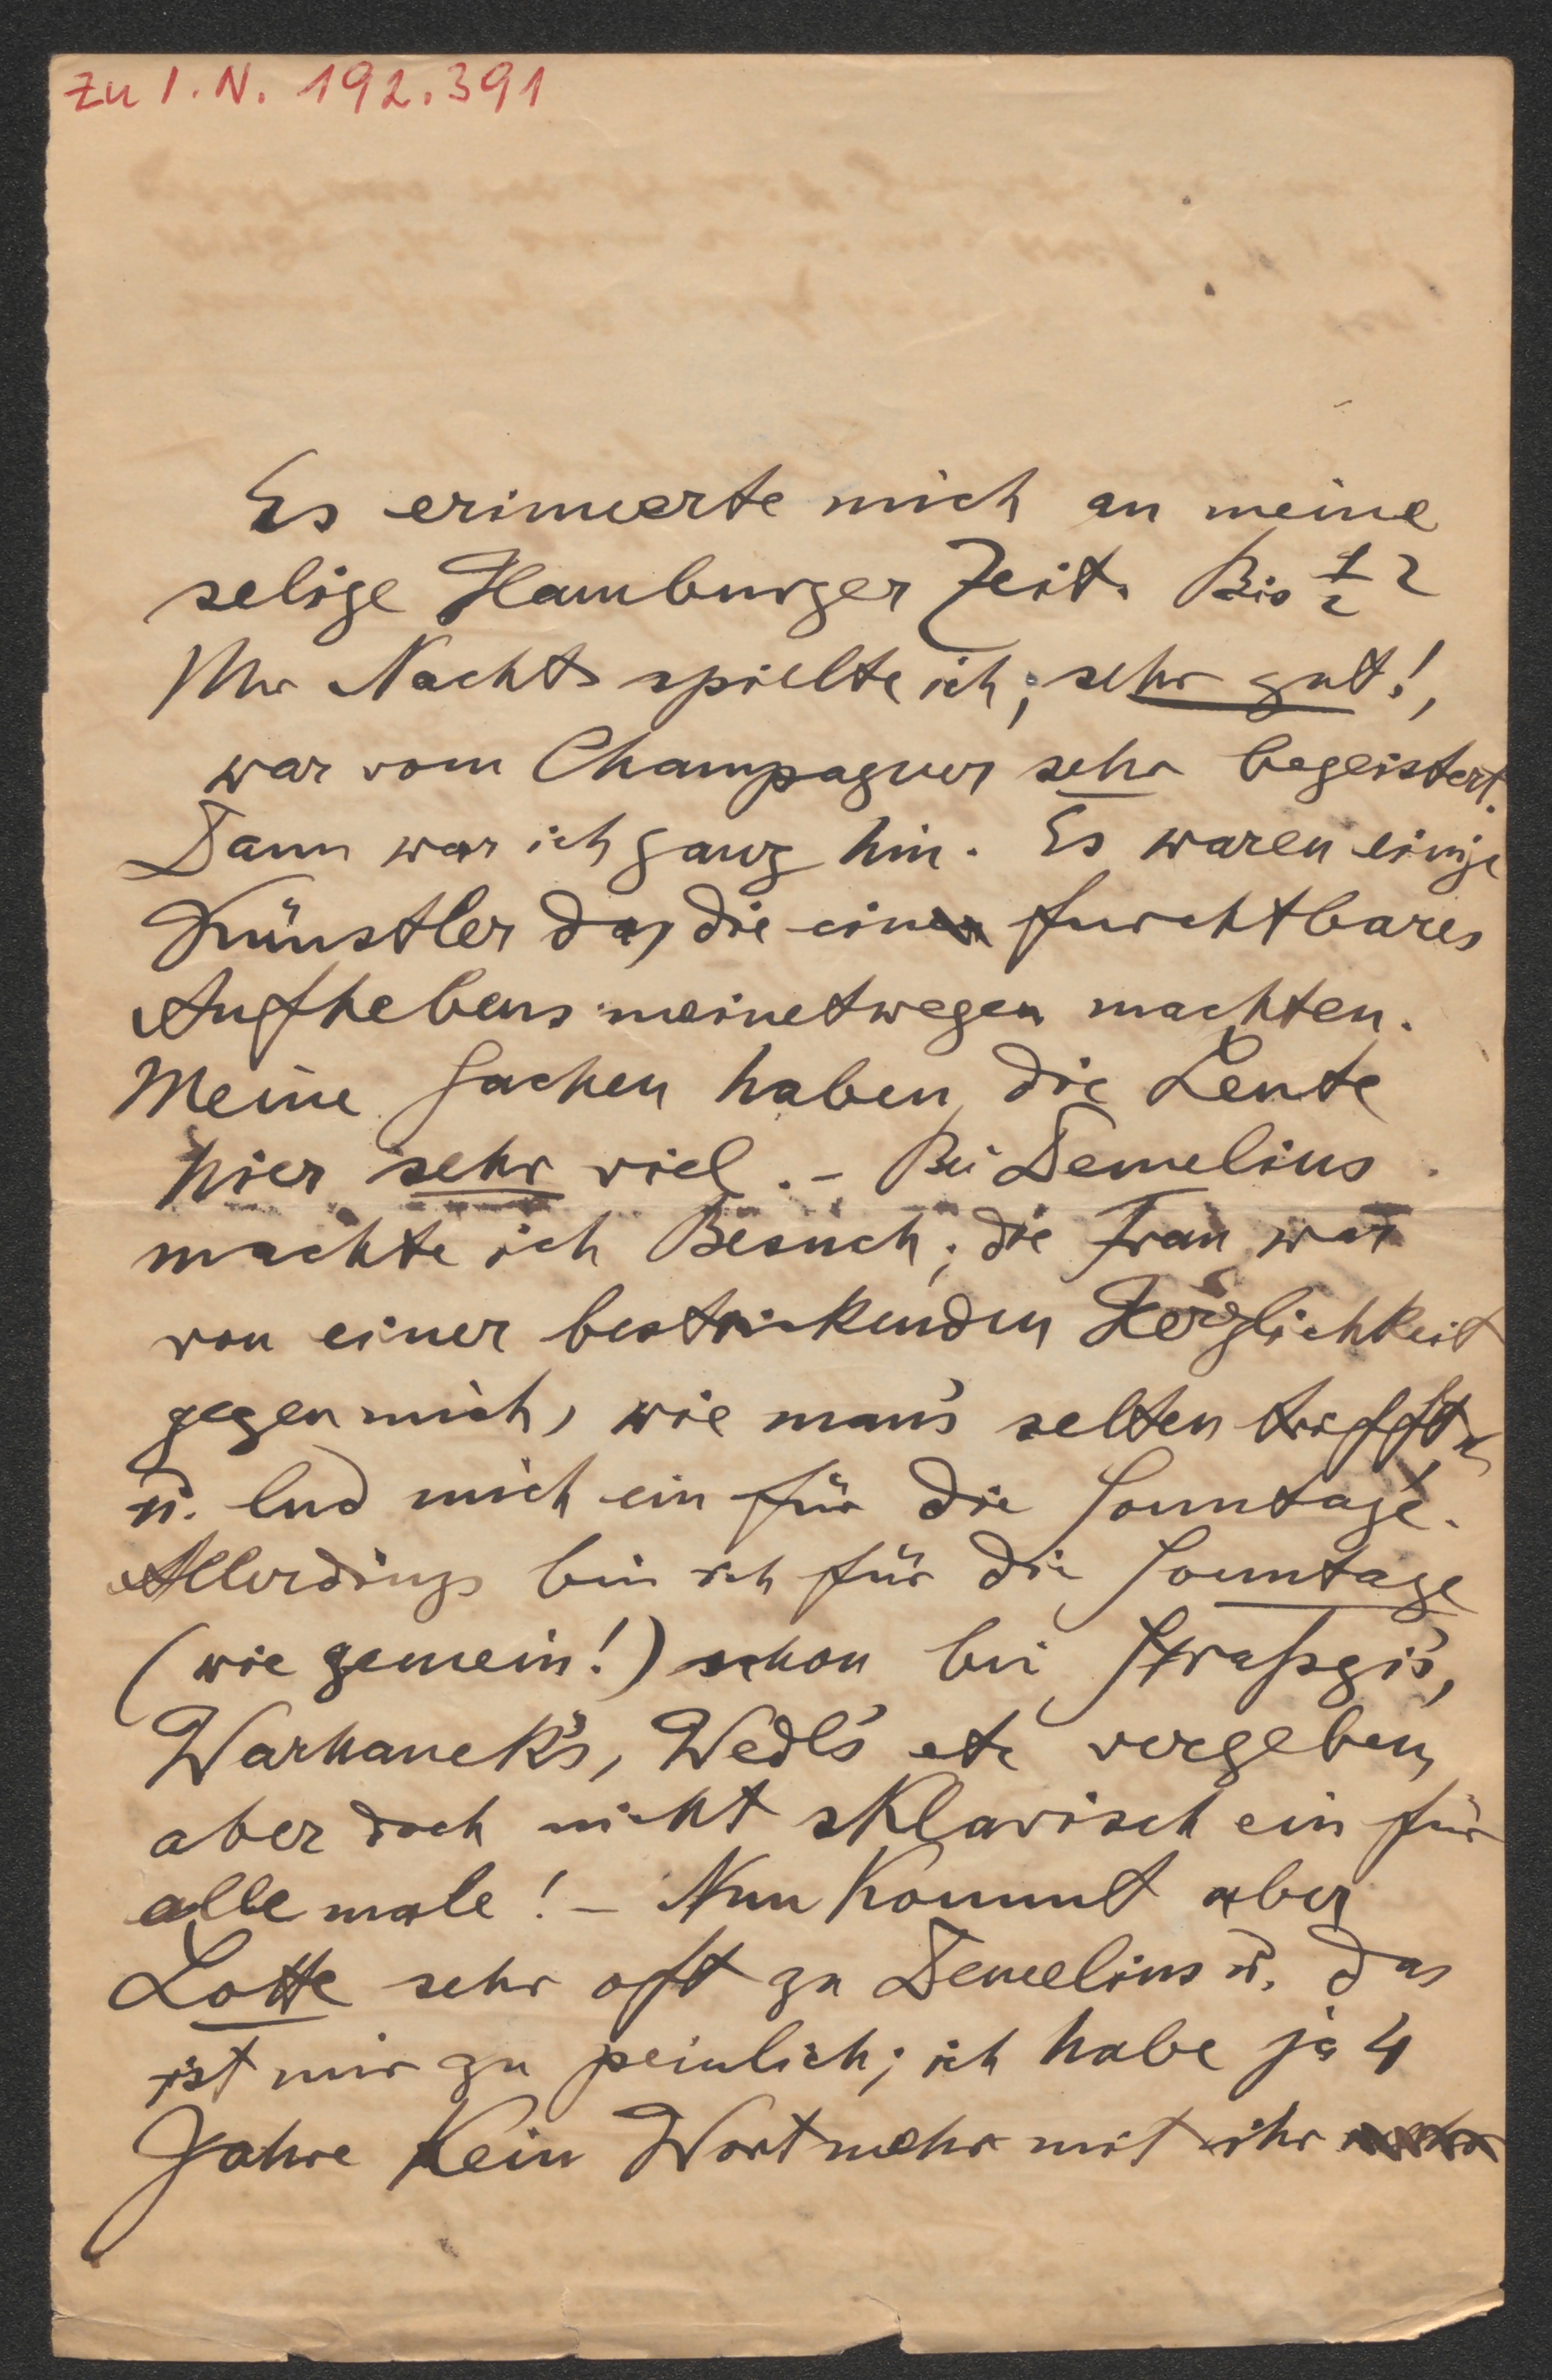 Zu I.N. 192.391
Es erinnerte mich an meine
selige Hamburger Zeit. Bis ½ 2
Uhr Nachts spielte ich; sehr gut!,
war vom Champagner sehr begeistert.
Dann war ich ganz hin. Es waren einige
Künstler da, die ein furchtbares
Aufhebens meinetwegen machten.
Meine Sachen haben die Leute
hier sehr viel. – Bei Demelius
machte ich Besuch; die Frau war
von einer bestrickenden Herzlichkeit
gegen mich, wie man's selten trifft,
u. lud mich ein für die Sonntage.
Allerdings bin ich für die Sonntage
(wie gemein!) schon bei Straßgi's,
Warhanek's, Wedl's etc vergeben,
aber doch nicht sklavisch ein für
alle male! – Nun kommt aber
Lotte sehr oft zu Demelius u. das
ist mir zu peinlich; ich habe ja 4
Jahre kein Wort mehr mit ihr